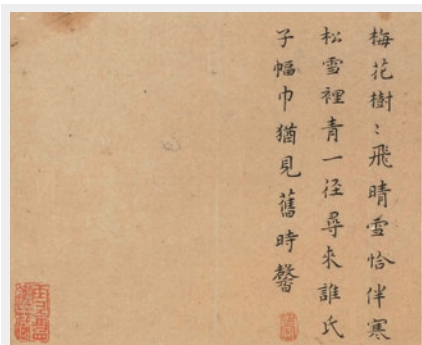 梅花樹〻飛晴雪恰伴寒
松雪裡青一径尋来誰氏
子幅巾猶見舊時馨